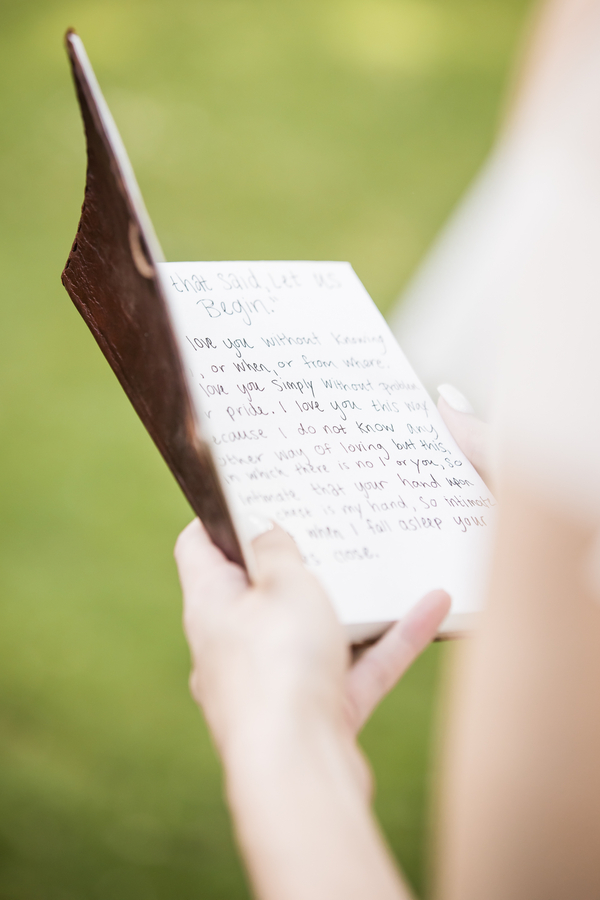 that said, Let us
Begin."
love you without knowing
, or when, or from where.
love you Simply without problem
r pride. I love you this way
ecause I do not know any
other way of loving but this,
in which there is no I or you, so
intimate that your hand upon
chest is my hand, So intimate
when I fall asleep your
close.